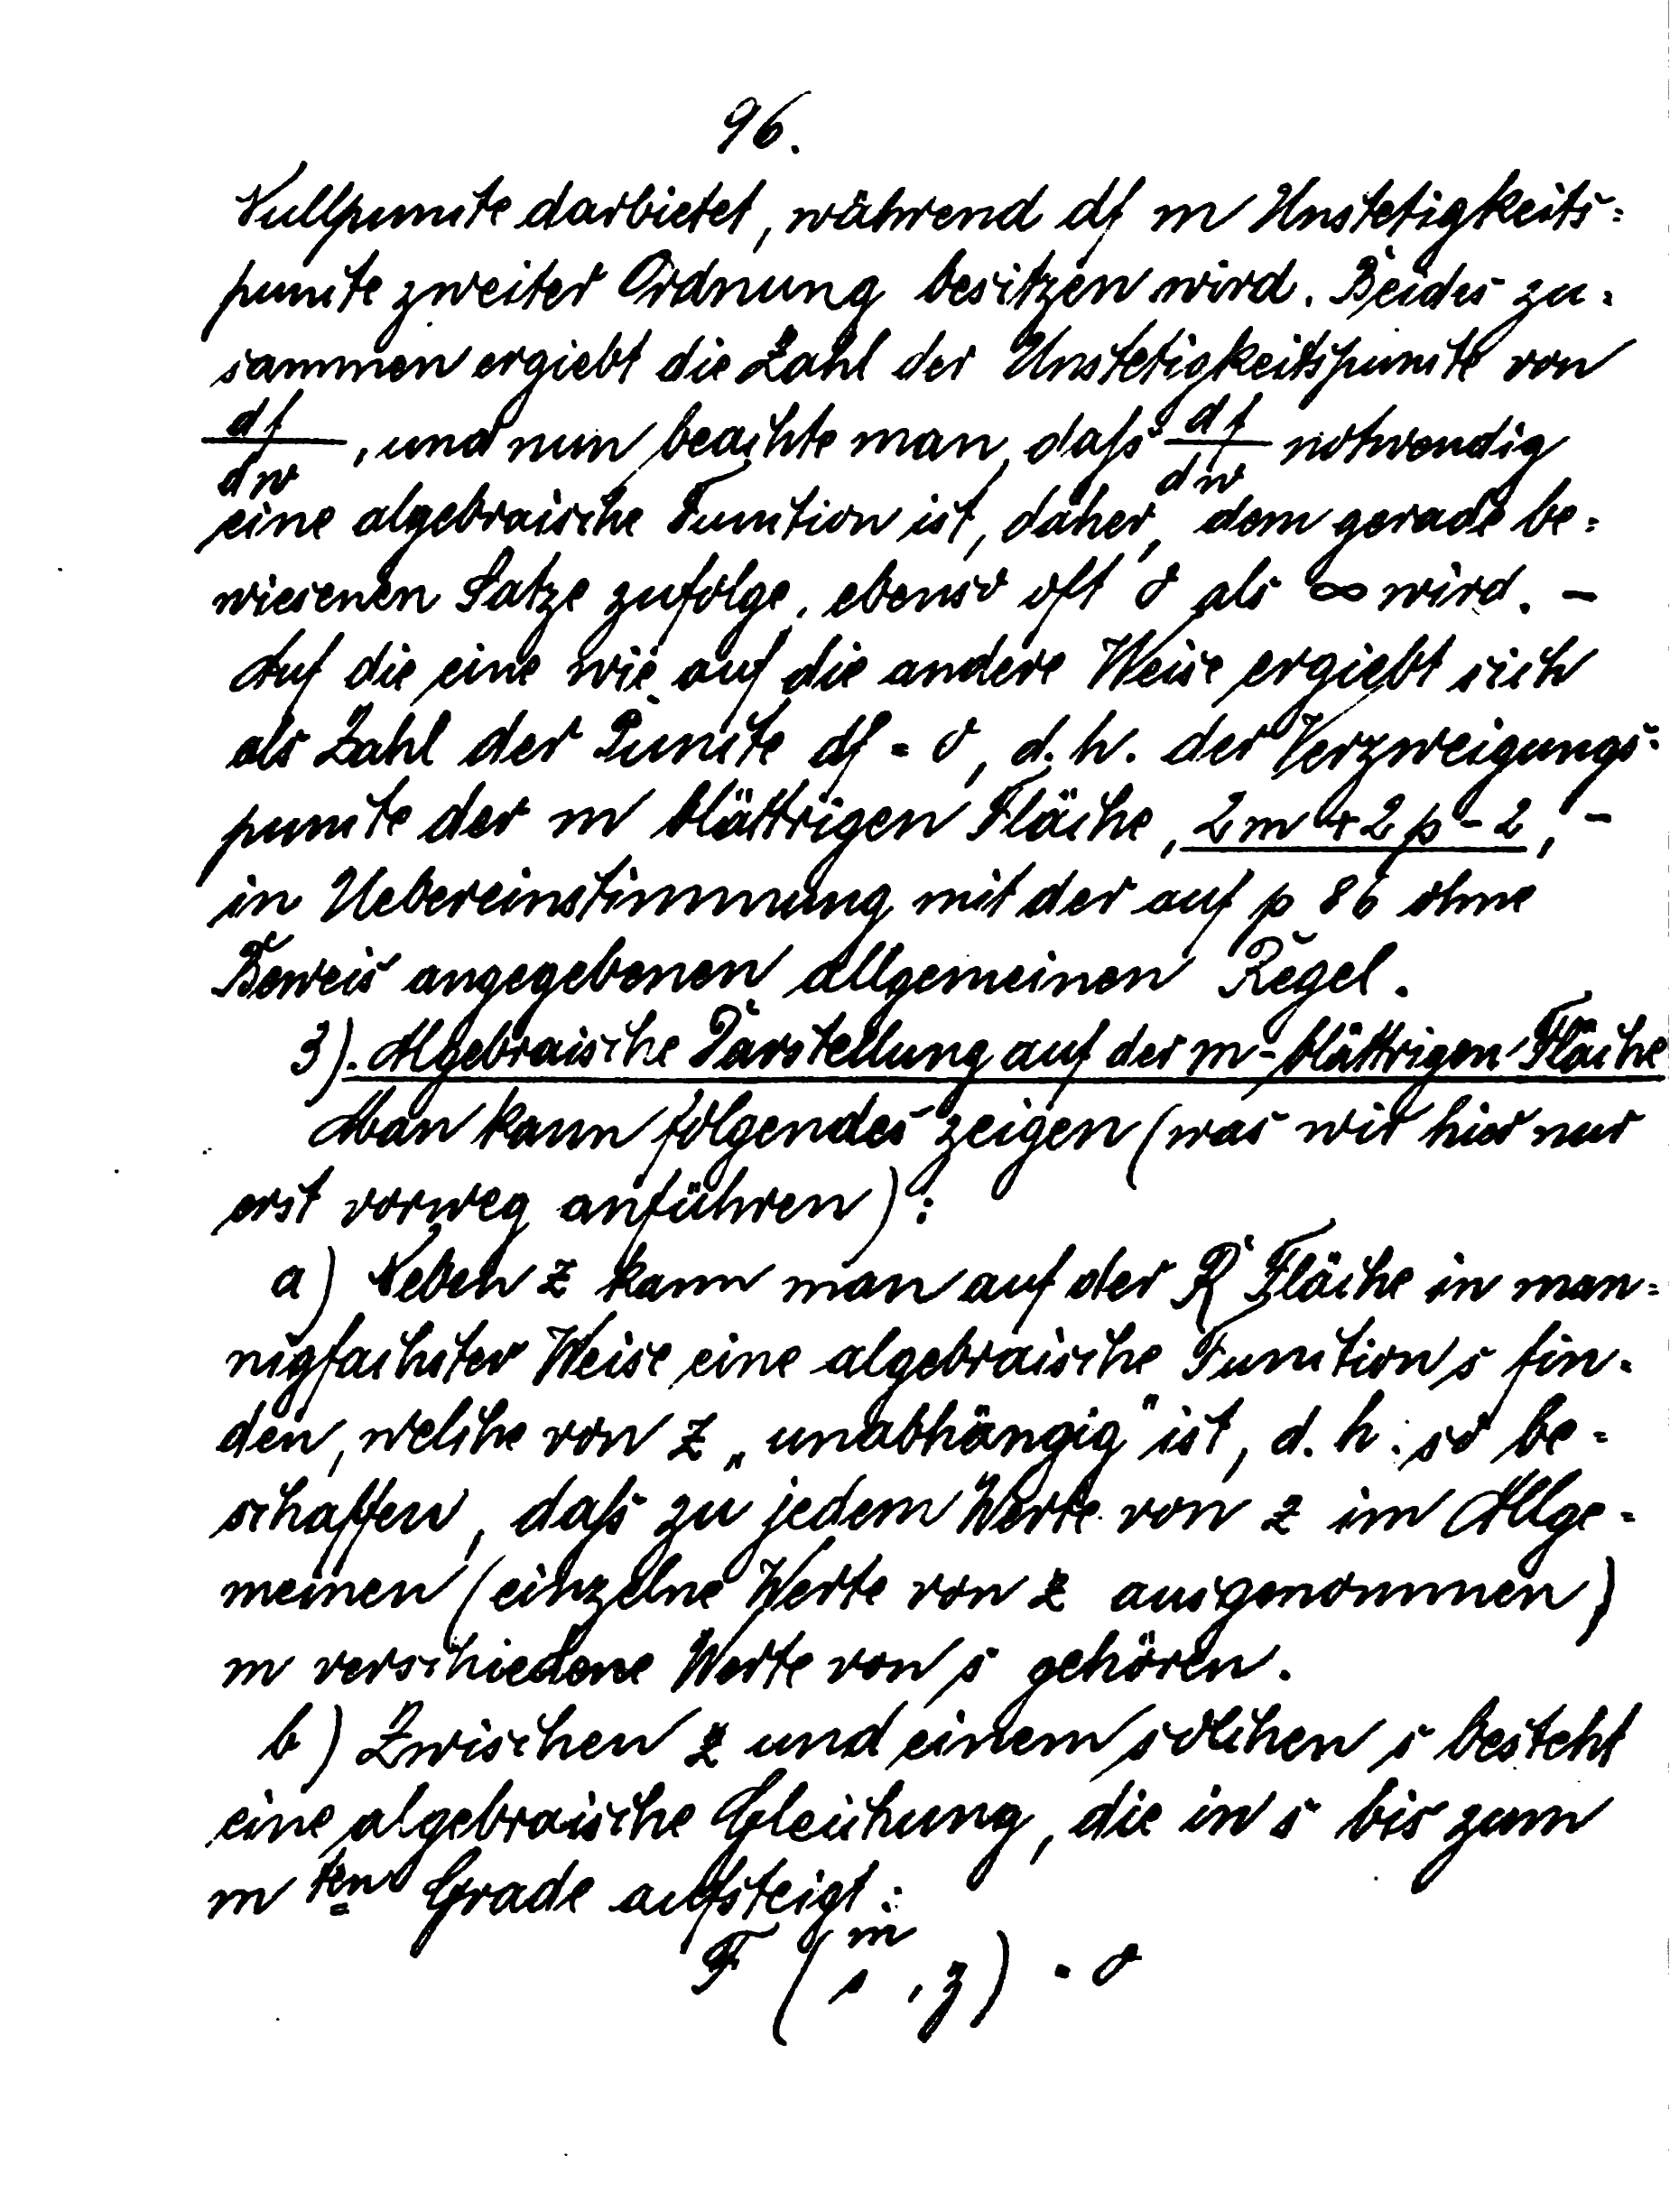 96.
Nullpuncte darbietet, während df m Unstetigkeits=
puncte zweiter Ordnung besitzen wird. Beides zu=
sammen ergiebt die Zahl der Unstetigkeitspuncte von
df/dw, und nun beachte man, daß df/dw notwendig
eine algebraische Function ist, daher, dem gerade be=
wiesenen Satze zufolge, ebenso oft 0 als ∞ wird. –
Auf die eine wie auf die andere Weise ergiebt sich
als Zahl der Puncte df = 0, d. h. der Verzweigungs=
puncte der m blättrigen Fläche, 2m + 2p - 2, –
in Uebereinstimmung mit der auf p 86 ohne
Beweis angegebenen allgemeinen Regel.
3). Algebraische Darstellung auf der m-blättrigen Fläche
Man kann folgendes zeigen (was wir hier nur
erst vorweg anführen):
a) Neben z kann man auf der R Fläche in man=
nigfachster Weise eine algebraische Function s fin=
den, welche von z „unabhängig" ist, d. h. so be=
schaffen, daß zu jedem Werte von z im Allge=
meinen (einzelne Werte von z ausgenommen)
m verschiedene Werte von s gehören.
b) Zwischen z und einem solchen s besteht
eine algebraische Gleichung, die in s bis zum
m ten Grade aufsteigt:
F (s^m, z) = 0